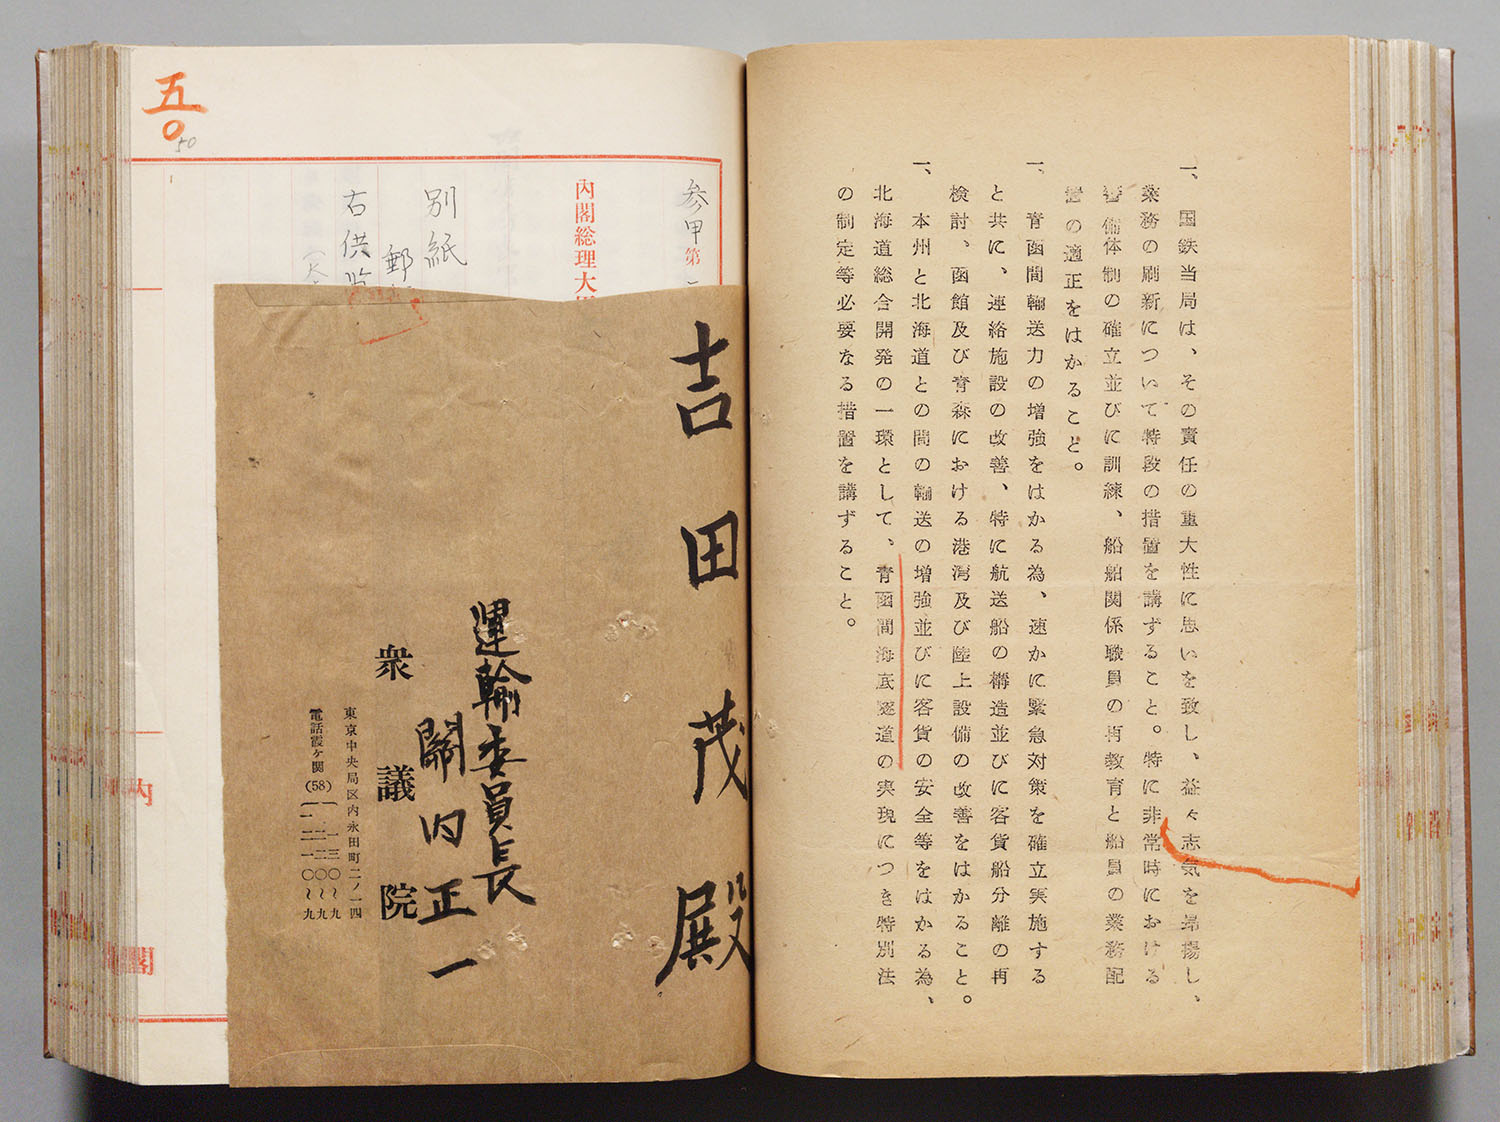 一、国鉄当局は、その責任の重大性に思いを致し、益々志気を昂揚し、
業務の刷新について特段の措置を講ずること。特に非常時における
警備体制の確立並びに訓練、船舶関係職員の再教育と船員の業務配
置の適正をはかること。
一、青函間輸送力の増強をはかる為、速かに緊急対策を確立実施する
と共に、連絡施設の改善、特に航送船の構造並びに客貨船分離の再
検討、函館及び青森における港湾及び陸上設備の改善をはかること。
一、本州と北海道との間の輸送の増強並びに客貨の安全等をはかる為、
北海道総合開発の一環として、青函間海底隧道の実現につき特別法
の制定等必要なる措置を講ずること。
参甲第
内閣総理大
別紙
郵
右供
五〇
50
吉田茂殿
運輸委員長
關内正一
衆議院
東京中央局区内永田町二ノ一四
電話霞ケ関(58)
一一三〇~九
二二〇~九
一二一〇~九
内
閣